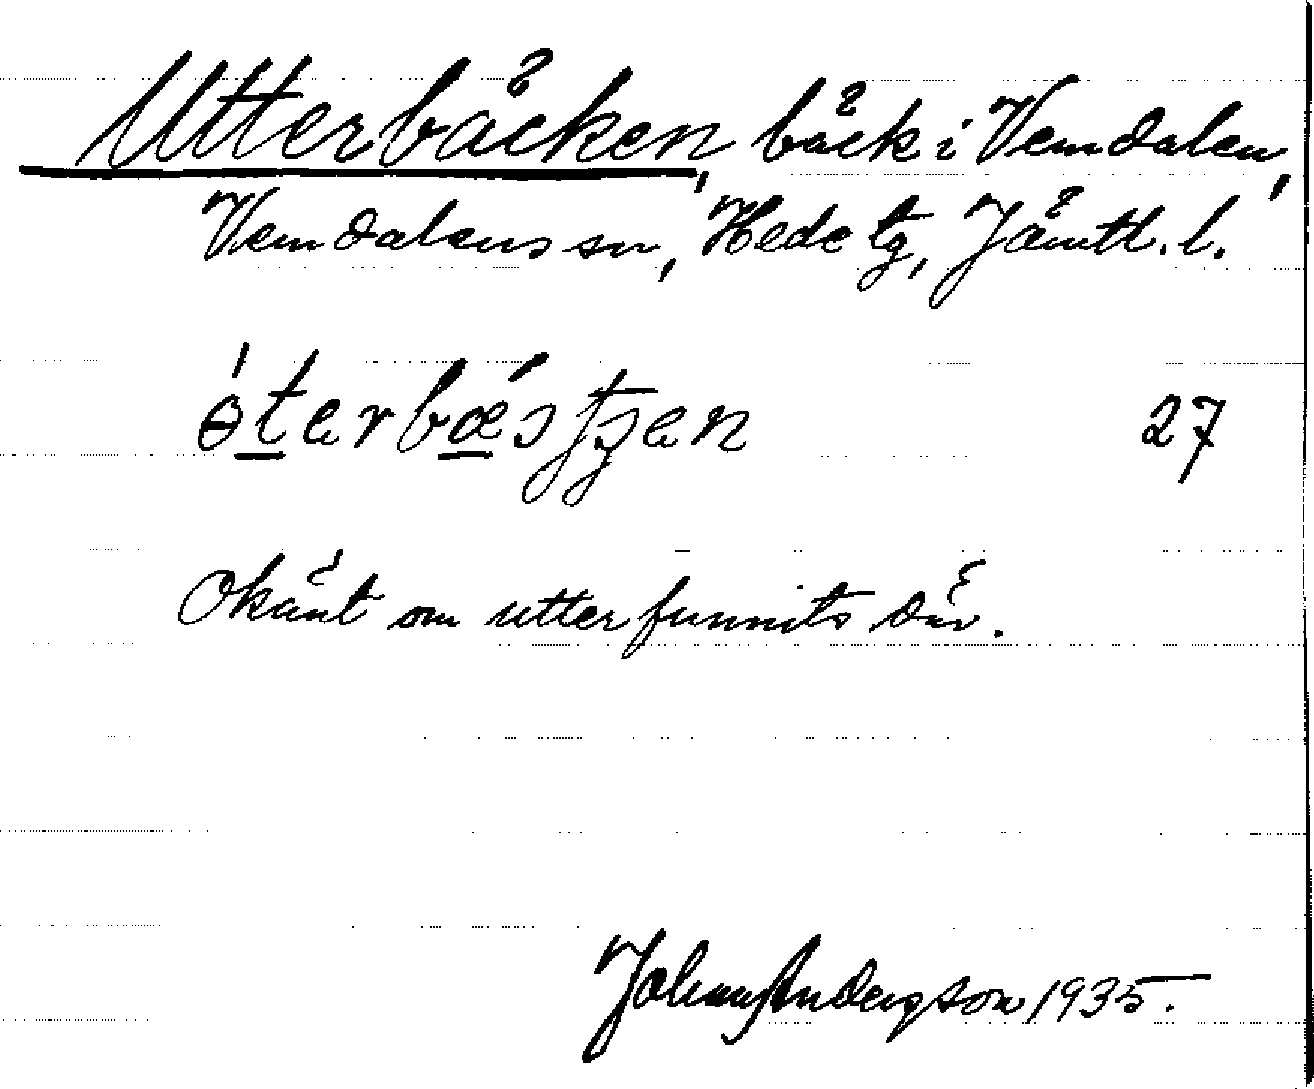 Utterbäcken, bäck i Vemdalen,
Vemdalens sn, Hede tg, Jämtl. l.
27
Okänt om utter funnits där.
Johan Andersson 1935.